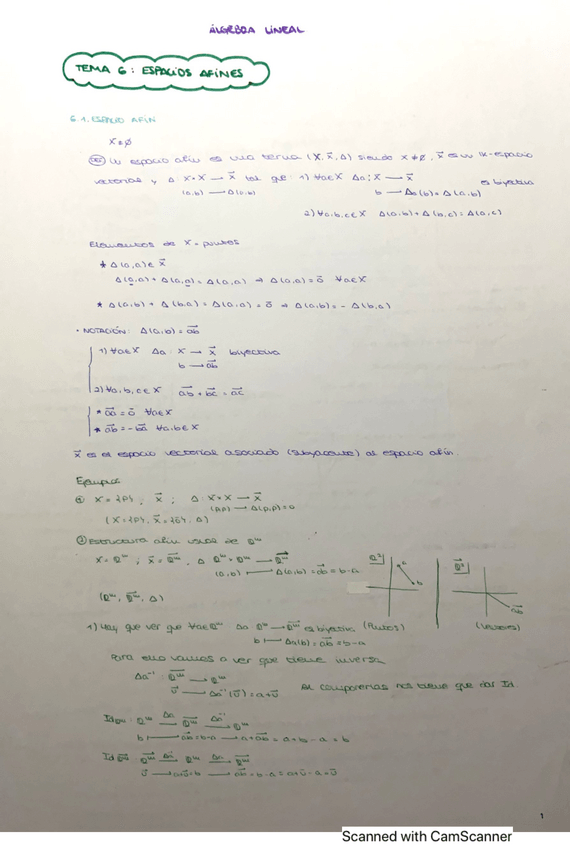 ÁLGEBRA LINEAL
TEMA 6: ESPACIOS AFINES
6.1. ESPACIO AFÍN
X ≠ ∅
Un espacio afín es una terna (X, X⃗, Δ) siendo X ≠ ∅, X⃗ es un K-espacio
vectorial y Δ: X×X → X⃗ tal que: 1) ∀a∈X Δa: X → X⃗ es biyectiva
(a,b) → Δ(a,b) b → Δa(b) = Δ(a,b)
2) ∀a,b,c∈X Δ(a,b) + Δ(b,c) = Δ(a,c)
Elementos de X = puntos
* Δ(a,a) ∈ X⃗
Δ(a,a) + Δ(a,a) = Δ(a,a) ⇒ Δ(a,a) = 0⃗ ∀a∈X
* Δ(a,b) + Δ(b,a) = Δ(a,a) = 0⃗ ⇒ Δ(a,b) = - Δ(b,a)
• NOTACIÓN: Δ(a,b) = ab⃗
1) ∀a∈X Δa: X → X⃗ biyectiva
b → ab⃗
2) ∀a,b,c∈X ab⃗ + bc⃗ = ac⃗
* aa⃗ = 0⃗ ∀a∈X
* ab⃗ = - ba⃗ ∀a,b∈X
X⃗ es el espacio vectorial asociado (subyacente) al espacio afín.
Ejemplos
① X = {P}; X⃗; Δ: X×X → X⃗
(P,P) → Δ(P,P) = 0
(X = {P}, X⃗ = {0⃗}, Δ)
② Estructura afín usual de
(a,b) ⟼ Δ(a,b) = ab⃗ = b-a
a
b
ab⃗
1) Hay que ver que es biyectiva (Puntos) (Vectores)
b ⟼ Δa(b) = ab⃗ = b-a
Para ello vamos a ver que tiene inversa
u⃗ → Δa⁻¹(u⃗) = a+u⃗ Al componerlas nos tiene que dar Id
b ⟼ ab⃗ = b-a → a+ab⃗ = a+b-a = b
u⃗ → a+u⃗ = b → ab⃗ = b-a = a+u⃗-a = u⃗
1
Scanned with CamScanner